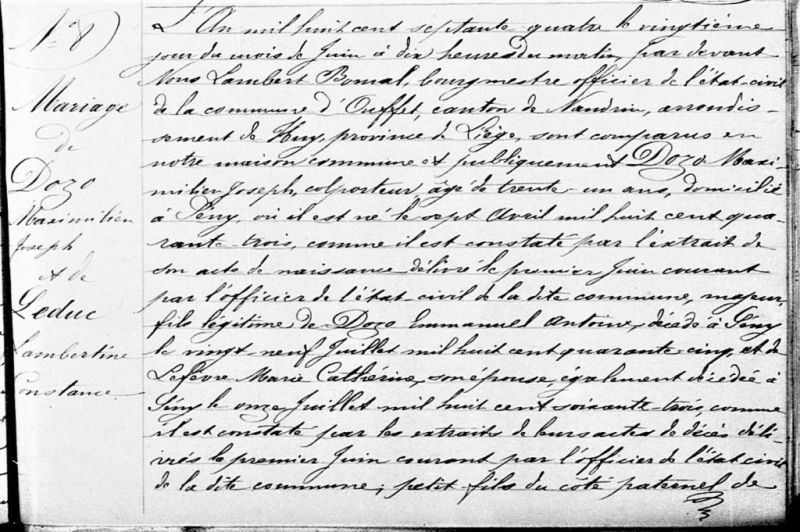 N° 8
Mariage
de
Dozo
Maximilien
Joseph
et de
Leduc
Lambertine
Constance
L'An mil huit cent septante quatre le vingtième
jour du mois de Juin à dix heures du matin, par devant
Nous Lambert Bomal, bourgmestre officier de l'état-civil
de la commune d'Ouffet, canton de Nandrin, arrondis-
sement de Huy, province de Liège, sont comparus en
notre maison commune et publiquement Dozo Maxi-
milien Joseph, colporteur, âgé de trente-un ans, domicilié
à Seny, où il est né le sept Avril mil huit cent qua-
rante-trois, comme il est constaté par l'extrait de
son acte de naissance délivré le premier Juin courant
par l'officier de l'état-civil de la dite commune, majeur,
fils légitime de Dozo Emmanuel Antoine, décédé à Seny
le vingt neuf Juillet mil huit cent quarante-cinq, et de
Lefèvre Marie Cathérine, son épouse, également décédée à
Seny le onze Juillet mil huit cent soixante-trois, comme
il est constaté par les extraits de leurs actes de décès déli-
vrés le premier Juin courant par l'officier de l'état civil
de la dite commune; petit-fils du côté paternel de